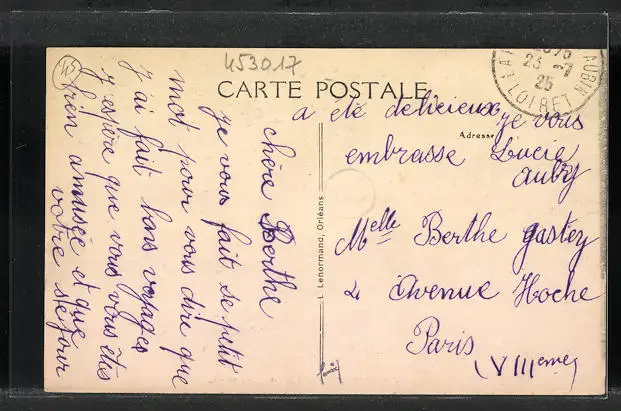 453017
CARTE POSTALE
chère Berthe
je vous fait se petit
mot pour vous dire que
j'ai fait bons voyages
j'espère que vous vous êtes
bien amusée et que
votre séjour
a été delicieux je vous
embrasse Lucie
Aubry
Adresse
Melle Berthe Gastey
2 Avenue Hoche
Paris
(VIIIeme)
L. Lenormand, Orléans
23 -7
25
LOIRET